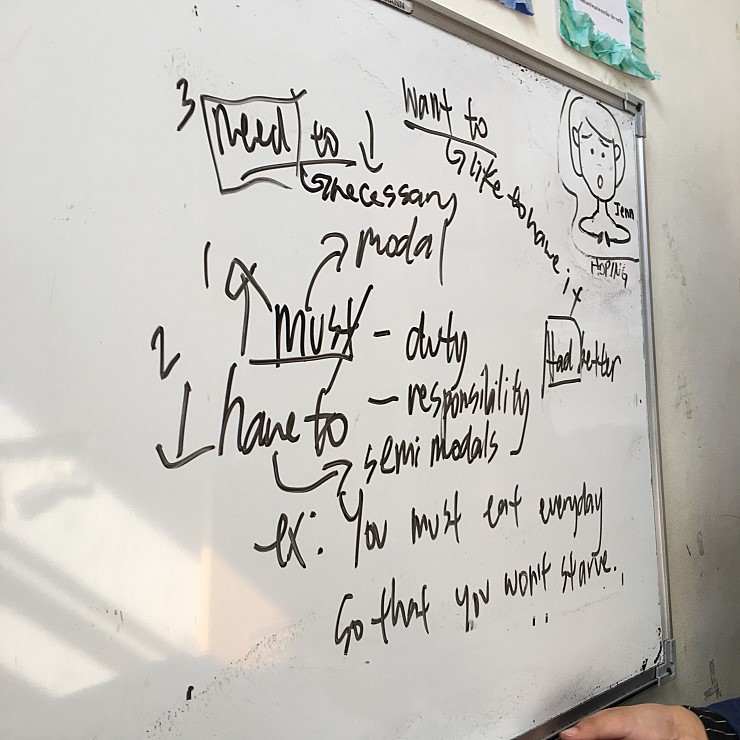 3 Need to
necessary
want to
like to have it
Jenn
HOPING
modal
1 must - duty
Had better
2 have to - responsibility
semi modals
ex: You must eat everyday
so that you won't starve.